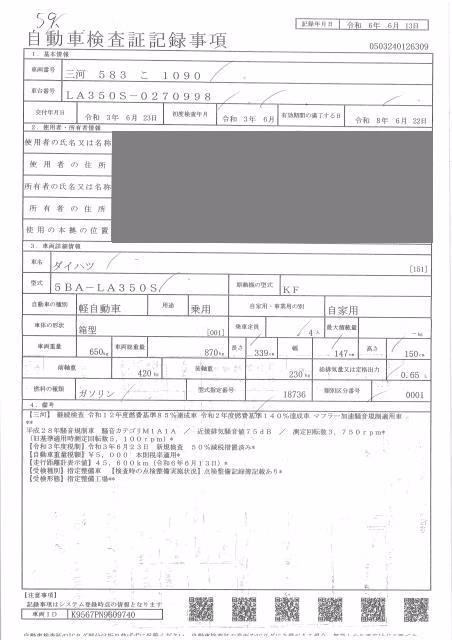 59%
記録年月日 令和 6年 6月 13日
自動車検査証記録事項
0503240126309
1．基本情報
車両番号 三河 583 こ 1090
車台番号 LA350S-0270998
交付年月日 令和 3年 6月 23日 初度検査年月 令和 3年 6月 有効期間の満了する日 令和 8年 6月 22日
2．使用者・所有者情報
使用者の氏名又は名称
使用者の住所
所有者の氏名又は名称
所有者の住所
使用の本拠の位置
3．車両詳細情報
車名 ダイハツ [151]
型式 5BA-LA350S 原動機の型式 KF
自動車の種別 軽自動車 用途 乗用 自家用・事業用の別 自家用
車体の形状 箱型 [001] 乗車定員 4人 最大積載量 -kg
車両重量 650kg 車両総重量 870kg 長さ 339cm 幅 147cm 高さ 150cm
前軸重 420kg 後軸重 230kg 総排気量又は定格出力 0.65 L
燃料の種類 ガソリン 型式指定番号 18736 類別区分番号 0001
4．備考
【三河】 継続検査 令和12年度燃費基準85%達成車 令和2年度燃費基準140%達成車 マフラー加速騒音規制適用車
**
平成28年騒音規制車 騒音カテゴリM1A1A ／ 近接排気騒音値75dB ／ 測定回転数3，750rpm*
(旧基準適用時測定回転数5，100rpm)*
【令和3年度税制】令和3年6月23日 新規検査 50%減税措置済み*
【自動車重量税額】¥5,000 本則税率適用*
【走行距離計表示値】45,600km(令和6年6月13日)*
【受検種別】指定整備車 【検査時の点検整備実施状況】点検整備記録簿記載あり*
【受検形態】指定整備工場**
【注意事項】
記録事項はシステム登録時点の情報となります
車両ID K9567PN9609740